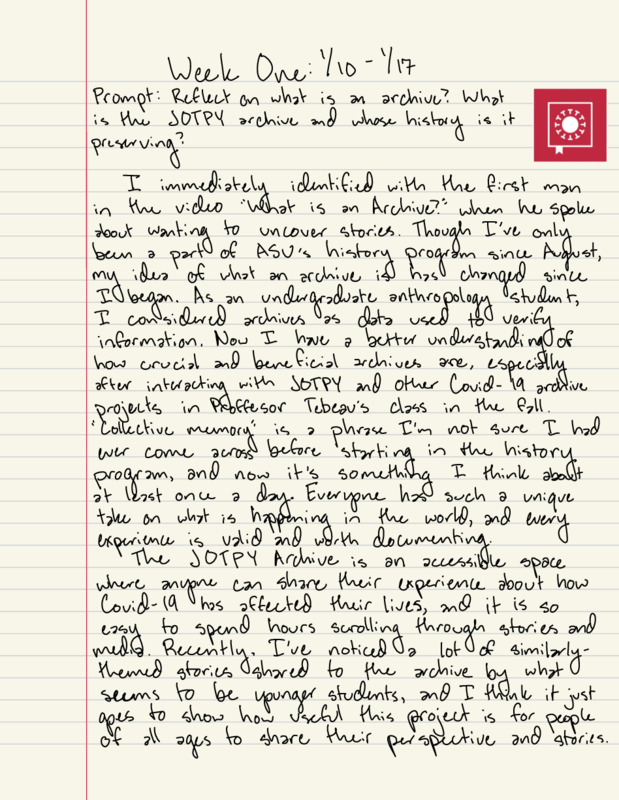 Week One: 1/10 - 1/17
Prompt: Reflect on what is an archive? What
is the JOTPY archive and whose history is it
preserving?
I immediately identified with the first man
in the video "What is an Archive?" when he spoke
about wanting to uncover stories. Though I've only
been a part of ASU's history program since August,
my idea of what an archive is has changed since
I began. As an undergraduate anthropology student,
I considered archives as data used to verify
information. Now I have a better understanding of
how crucial and beneficial archives are, especially
after interacting with JOTPY and other Covid-19 archive
projects in Proffesor Tebeau's class in the fall.
"Collective memory" is a phrase I'm not sure I had
ever come across before starting in the history
program, and now it's something I think about
at least once a day. Everyone has such a unique
take on what is happening in the world, and every
experience is valid and worth documenting.
The JOTPY Archive is an accessible space
where anyone can share their experience about how
Covid-19 has affected their lives, and it is so
easy to spend hours scrolling through stories and
media. Recently, I've noticed a lot of similarly-
themed stories shared to the archive by what
seems to be younger students, and I think it just
goes to show how useful this project is for people
of all ages to share their perspective and stories.